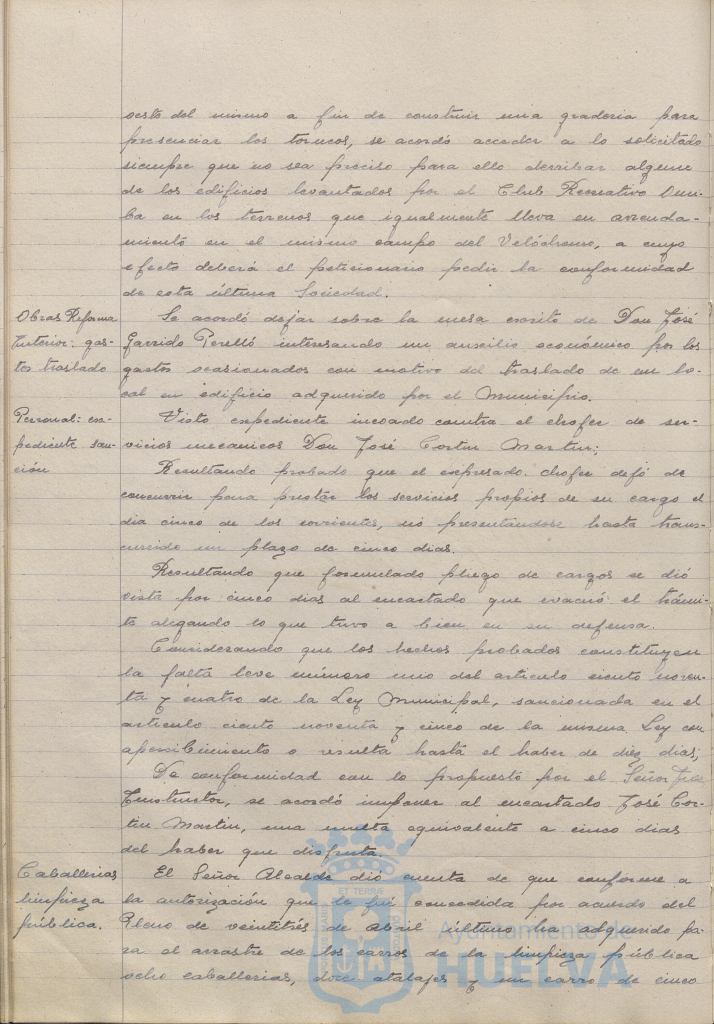 oeste del mismo a fin de construir una gradería para
presenciar los torneos, se acordó acceder a lo solicitado
siempre que no sea preciso para ello derribar alguno
de los edificios levantados por el Club Recreativo Onu-
ba en los terrenos que igualmente lleva en arrenda-
miento en el mismo campo del Velódromo, a cuyo
efecto deberá el peticionario pedir la conformidad
de esta última Sociedad.
Obras Reforma
Interior: gas-
tos traslado
Se acordó dejar sobre la mesa escrito de Don José
Garrido Perelló interesando un auxilio económico por los
gastos ocasionados con motivo del traslado de un lo-
cal en edificio adquirido por el Municipio.
Personal: ex-
pediente san-
ción
Visto expediente incoado contra el chofer de ser-
vicios mecanicos Don José Cortin Martin;
Resultando probado que el expresado chofer dejó de
concurrir para prestar los servicios propios de su cargo el
dia cinco de los corrientes, nó presentándose hasta trans-
currido un plazo de cinco dias.
Resultando que formulado pliego de cargos se dió
vista por cinco dias al encartado que evacuó el trámi-
te alegando lo que tuvo a bien en su defensa.
Considerando que los hechos probados constituyen
la falta leve número uno del articulo ciento noven-
ta y cuatro de la Ley Municipal, sancionada en el
articulo ciento noventa y cinco de la misma Ley con
apercibimiento o multa hasta el haber de diez dias;
De conformidad con lo propuesto por el Señor Juez
Instructor, se acordó imponer al encartado José Cor-
tin Martin, una multa equivalente a cinco dias
del haber que disfruta.
Caballerias
limpieza
pública.
El Señor Alcalde dió cuenta de que conforme a
la autorización que le fué concedida por acuerdo del
Pleno de veintitrés de Abril último ha adquirido pa-
ra el arrastre de los carros de la limpieza pública
ocho caballerias, doce atalajes y un carro de cinco
ET TERRÆ
Ayuntamiento de
HUELVA